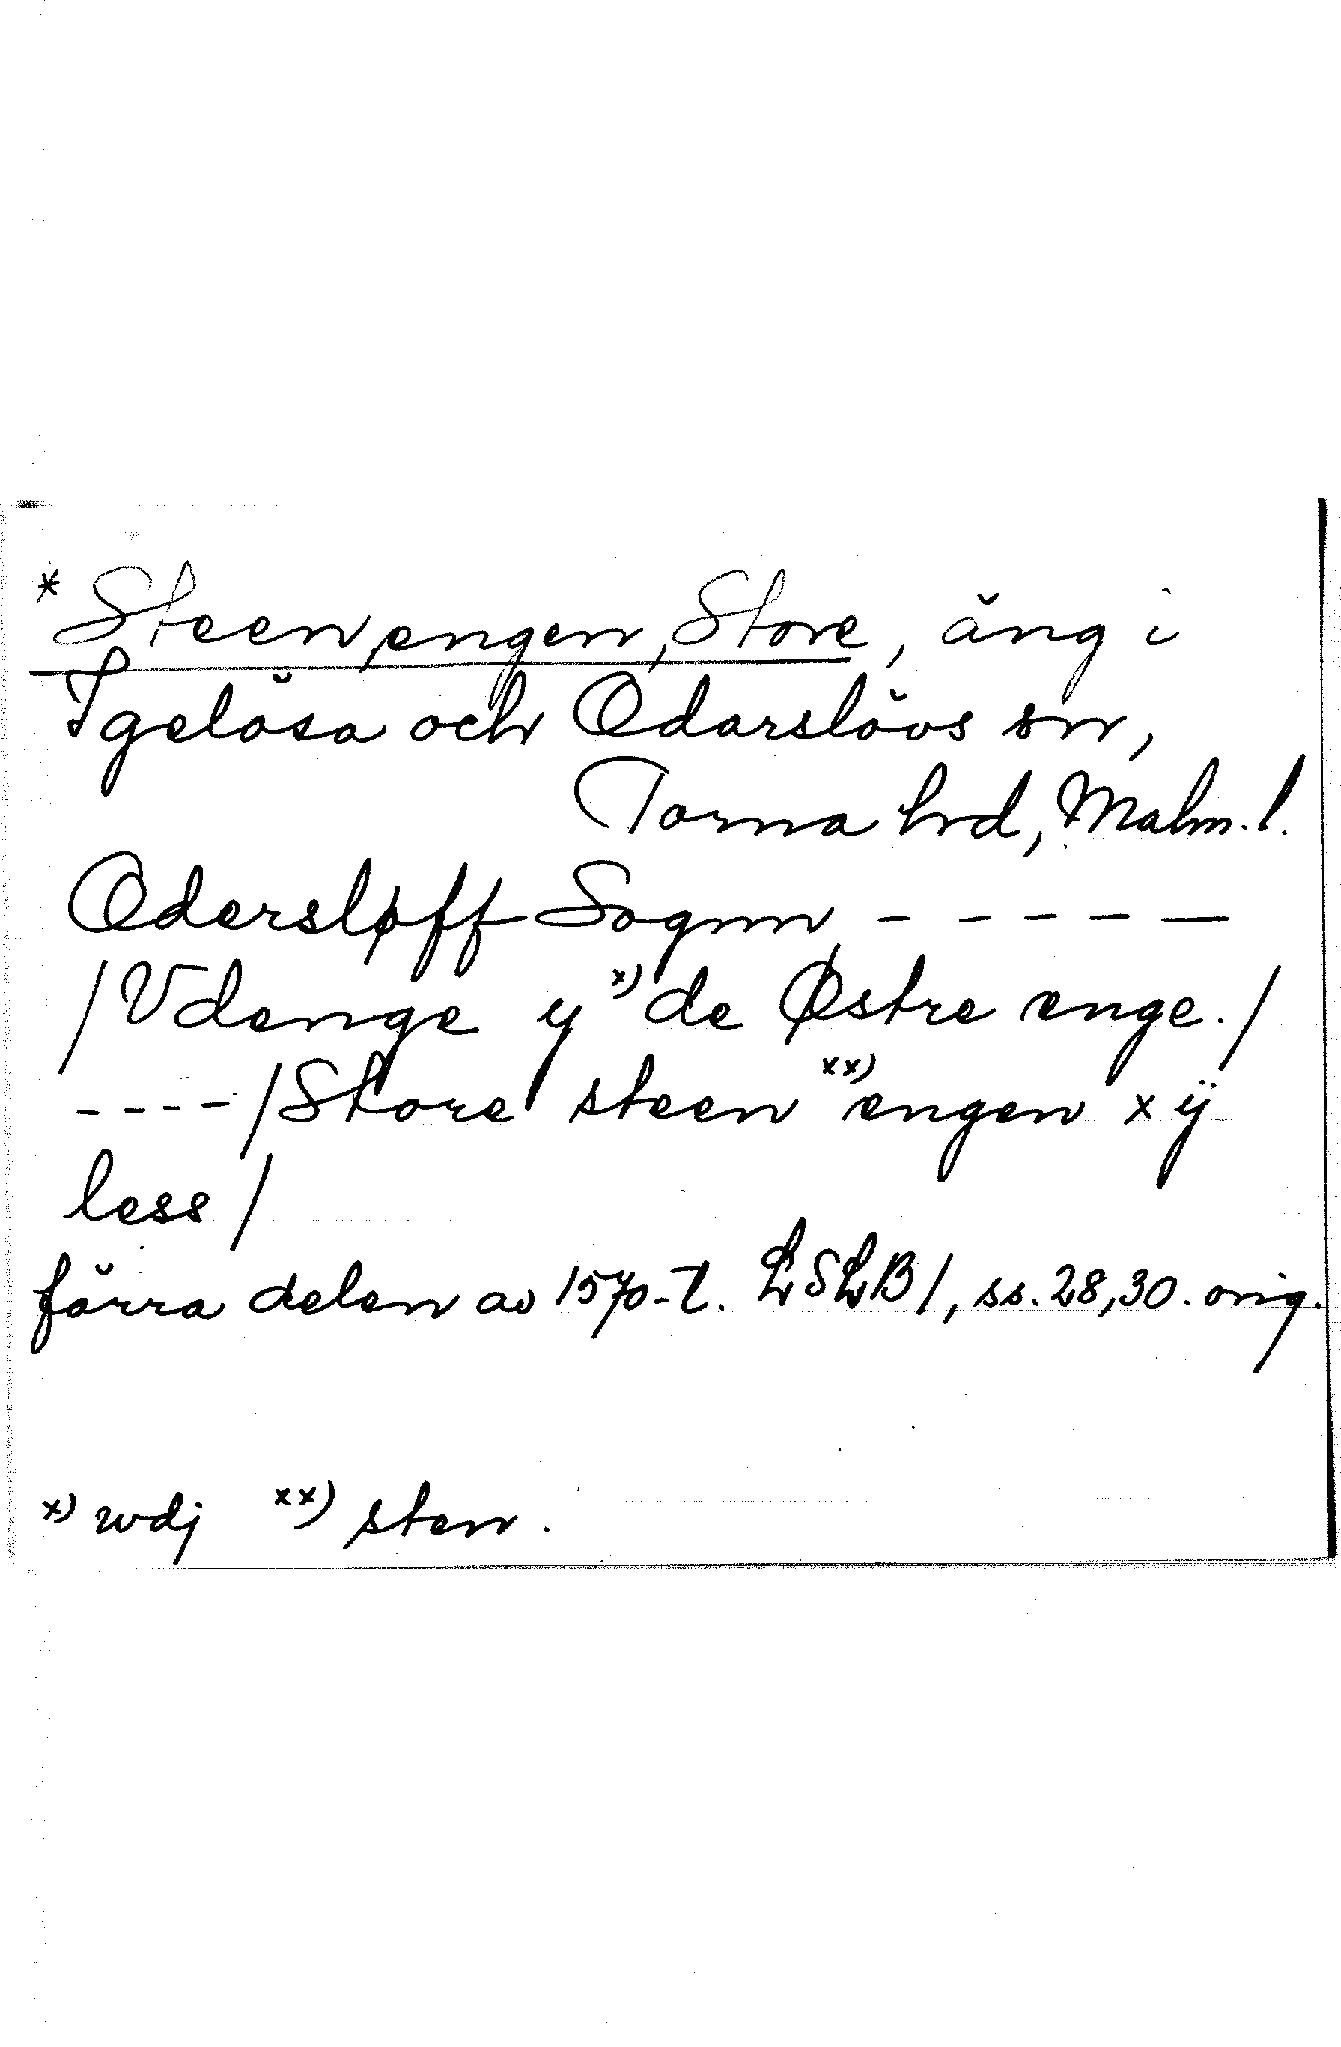 * Steen engen, Store, äng i
Igelösa och Odarslövs snr,
Torna hrd, Malm. l.
Odersløff Sognn - - - - -
/Vdenge y x) de Østre enge./
- - - - /Store steen xx) engen x ÿ
less/
förra delen av 1570-t. LSLB 1, ss. 28, 30. orig.
x) wdj xx) sten.